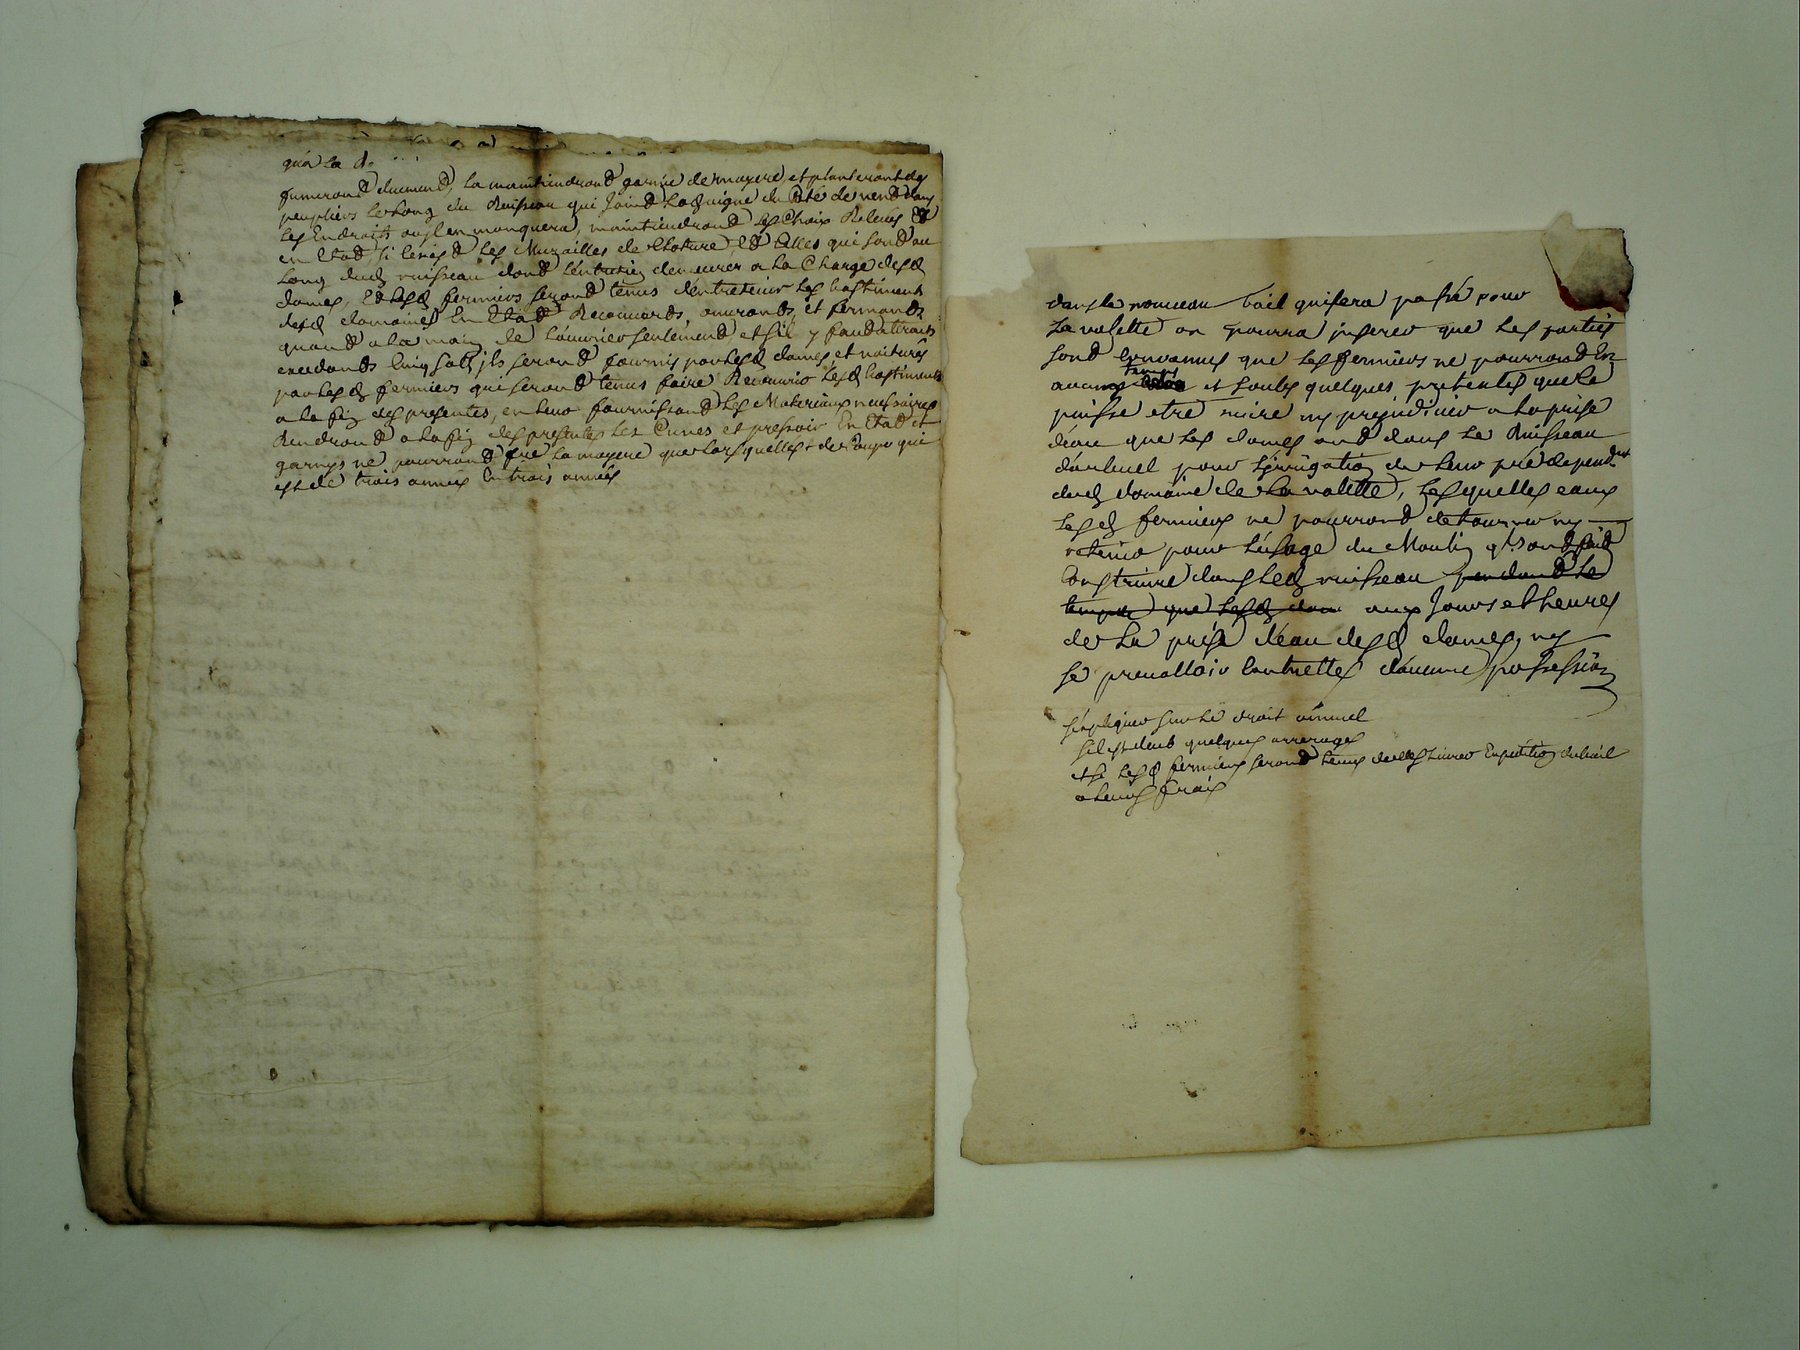 qu'a la d
fumeront duement, la maintiendront garnie de mayere, et planteront des
peupliers le long du Ruisseau qui joint la vigne du Coté de vent dans
les Endroits ou jl en manquera, maintiendront les Chaix Relevés et
en Etat, si levés et les Murailles de Cloture, et celles qui sont au
long dud. ruisseau dont l'entretien demeurer a la Charge desd.
dames, et lesd. fermiers seront tenus d'entretenir les bastiments
desd. domaines En Etat Recouverts, ouvrants, et fermants
quand a la main de l'ouvrier seulement, et s'il y faut attraits
excedants cinq sols, jls seront fournis par lesd. dames et voiturés
par lesd. fermiers qui seront tenus faire Recouvrir lesd. bastiments
a la fin des presentes, en leur fournissant les Materiaux necessaires
Rendront a la fin des presentes les Cuves et pressoir En Etat et
garnys ne pourront la mayere que lorsquelle de Coupe qui
est de trois années En trois années
dans le nouveau bail qui sera passé pour
La valette on pourra jnserer que les parties
sont Convenues que les fermiers ne pourront En
aucuns temps et soubs quelques pretextes que ce
puisse etre nuire ny prejudicier a la prise
d'eau que les dames ont dans le Ruisseau
pour l'jrrigation de leur pré depend.nt
dud. domaine de La valette, lesquelles eaux
lesd. fermiers ne pourront detourner ny
retenir pour l'usage du Moulin qu'ils ont fait
Construire dans led. ruisseau pendant le
temps que lesd. dam aux Jours et heures
de la prise d'eau desd. dames, ny
se prevalloir Contre elles d'aucune possession
s'expliquer sur le droit annuel
s'il est deub quelques arrerages
et si lesd. fermiers seront tenus de Livrer Expedition du bail
a leurs frais